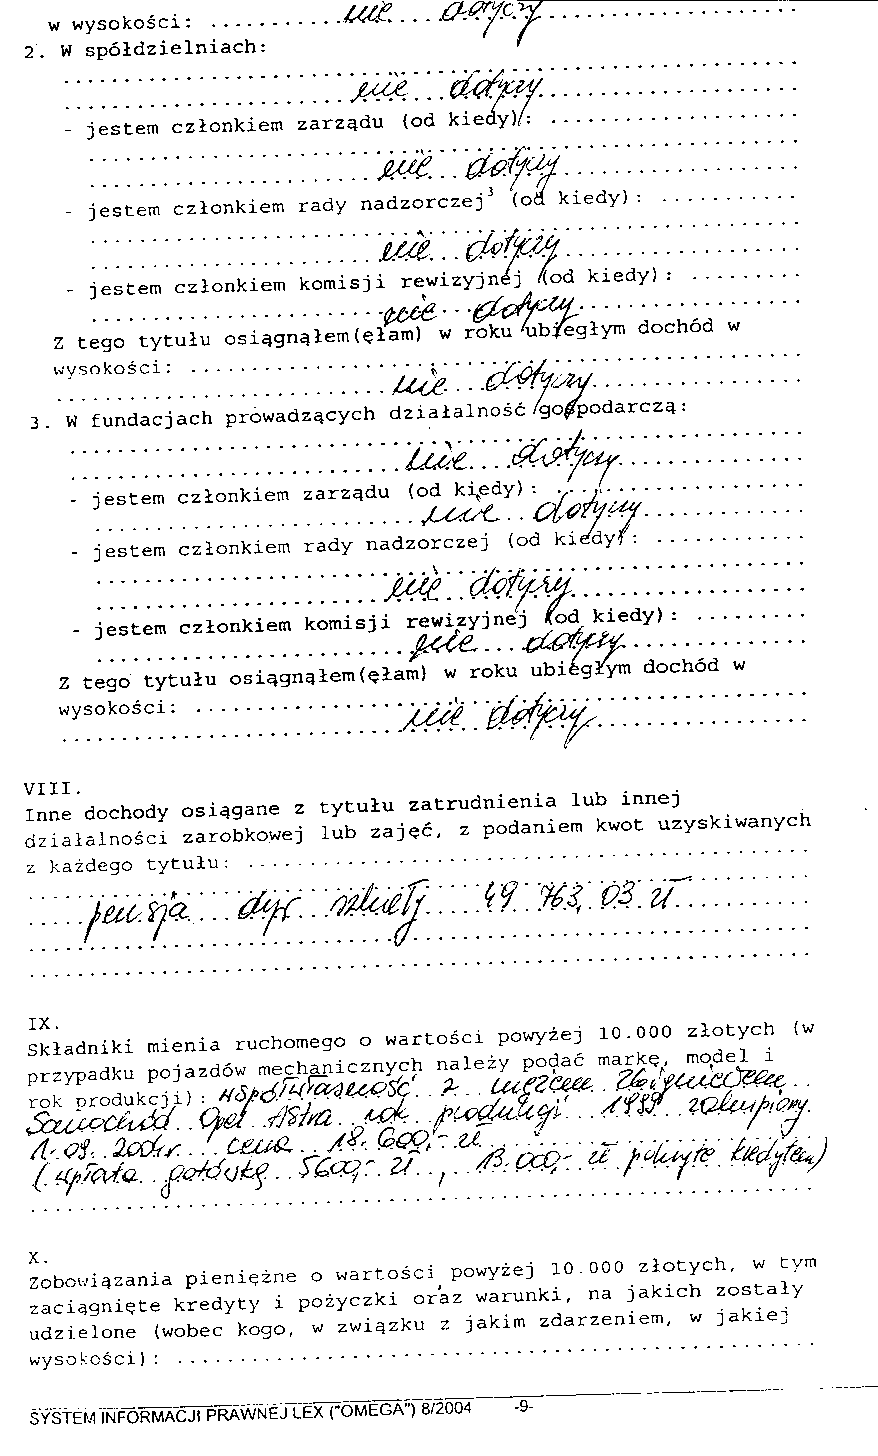 w wysokości: nie dotyczy
2. W spółdzielniach:
nie dotyczy
- jestem członkiem zarządu (od kiedy):
nie dotyczy
- jestem członkiem rady nadzorczej³ (od kiedy):
nie dotyczy
- jestem członkiem komisji rewizyjnej (od kiedy):
nie dotyczy
Z tego tytułu osiągnąłem(ęłam) w roku ubiegłym dochód w
wysokości:
nie dotyczy
3. W fundacjach prowadzących działalność gospodarczą:
nie dotyczy
- jestem członkiem zarządu (od kiedy):
nie dotyczy
- jestem członkiem rady nadzorczej (od kiedy):
nie dotyczy
- jestem członkiem komisji rewizyjnej (od kiedy):
nie dotyczy
Z tego tytułu osiągnąłem(ęłam) w roku ubiegłym dochód w
wysokości:
nie dotyczy
VIII.
Inne dochody osiągane z tytułu zatrudnienia lub innej
działalności zarobkowej lub zajęć, z podaniem kwot uzyskiwanych
z każdego tytułu:
pensja dyr szkoły 49 763,03 zł
IX.
Składniki mienia ruchomego o wartości powyżej 10.000 złotych (w
przypadku pojazdów mechanicznych należy podać markę, model i
rok produkcji): współwłasność z mężem Zbigniewem
Samochód Opel Astra rok produkcji 1999 zakupiony
1.09.2004r. cena 18.600,- zł
(wpłata gotówką 5600,- zł, 13.000,- zł pokryte kredytem)
X.
Zobowiązania pieniężne o wartości powyżej 10.000 złotych, w tym
zaciągnięte kredyty i pożyczki oraz warunki, na jakich zostały
udzielone (wobec kogo, w związku z jakim zdarzeniem, w jakiej
wysokości):
SYSTEM INFORMACJI PRAWNEJ LEX ("OMEGA") 8/2004 -9-